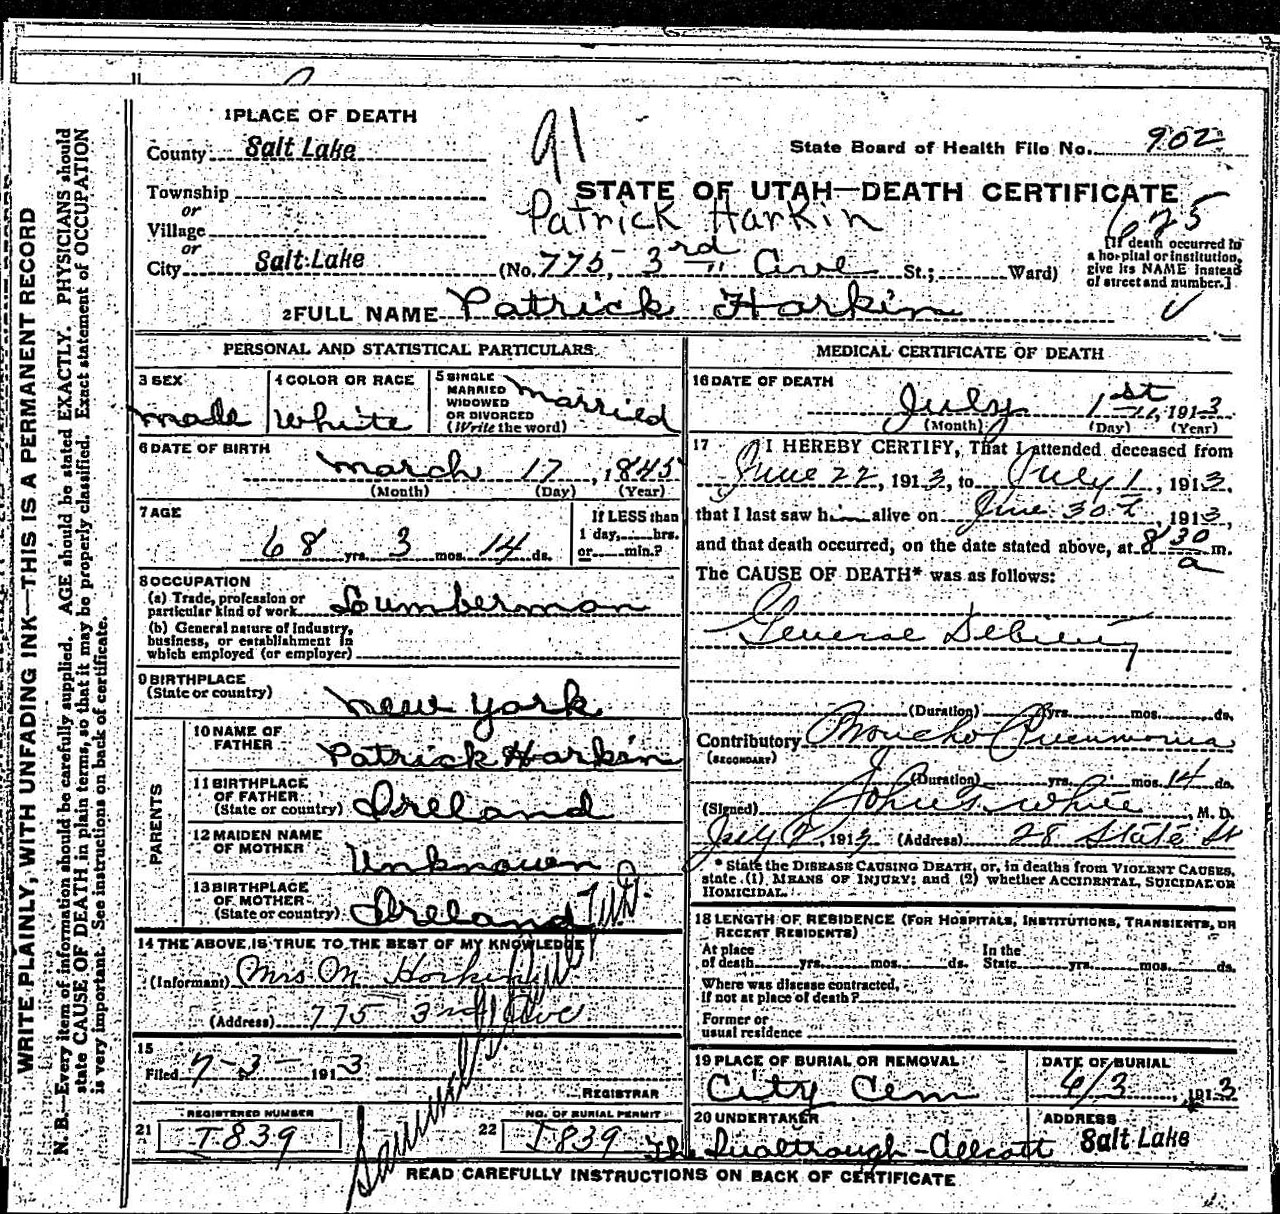 91
1 PLACE OF DEATH
County Salt Lake
State Board of Health File No. 902
Township
or
Village
or
City Salt Lake
STATE OF UTAH—DEATH CERTIFICATE
Patrick Harkin
625
(No. 775, 3rd Ave St.; Ward)
[If death occurred in
a hospital or institution,
give its NAME instead
of street and number.]
2 FULL NAME Patrick Harkin
PERSONAL AND STATISTICAL PARTICULARS
3 SEX
male
4 COLOR OR RACE
White
5 SINGLE
MARRIED
WIDOWED
OR DIVORCED
(Write the word)
married
6 DATE OF BIRTH
march 17, 1845
(Month) (Day) (Year)
7 AGE
68 yrs. 3 mos. 14 ds.
If LESS than
1 day, hrs.
or min.?
8 OCCUPATION
(a) Trade, profession or
particular kind of work Lumberman
(b) General nature of industry,
business, or establishment in
which employed (or employer)
9 BIRTHPLACE
(State or country)
new york
PARENTS
10 NAME OF
FATHER
Patrick Harkin
11 BIRTHPLACE
OF FATHER
(State or country) Ireland
12 MAIDEN NAME
OF MOTHER
Unknown
13 BIRTHPLACE
OF MOTHER
(State or country) Ireland
14 THE ABOVE IS TRUE TO THE BEST OF MY KNOWLEDGE
(Informant) Mrs M. Harkin
(Address) 775 3rd Ave
15
Filed 7-3- 1913
REGISTRAR
REGISTERED NUMBER
21 I839
NO. OF BURIAL PERMIT
22 I839
MEDICAL CERTIFICATE OF DEATH
16 DATE OF DEATH
July 1st, 1913
(Month) (Day) (Year)
17 I HEREBY CERTIFY, That I attended deceased from
June 22, 1913, to July 1, 1913,
that I last saw him alive on June 30, 1913,
and that death occurred, on the date stated above, at 8 30 a m.
The CAUSE OF DEATH* was as follows:
General Debility
(Duration) yrs. mos. ds.
Contributory Broncho Pneumonia
(SECONDARY)
(Duration) yrs. mos. 14 ds.
(Signed) John S. White, M. D.
July 2, 1913 (Address) 28 State St
* State the DISEASE CAUSING DEATH, or, in deaths from VIOLENT CAUSES,
state (1) MEANS OF INJURY; and (2) whether ACCIDENTAL, SUICIDAL OR
HOMICIDAL.
18 LENGTH OF RESIDENCE (FOR HOSPITALS, INSTITUTIONS, TRANSIENTS, OR
RECENT RESIDENTS)
At place of death yrs. mos. ds. In the State yrs. mos. ds.
Where was disease contracted,
if not at place of death?
Former or
usual residence
19 PLACE OF BURIAL OR REMOVAL
City Cem
DATE OF BURIAL
6/3, 1913
20 UNDERTAKER
The Qualtrough-Allcott
ADDRESS
Salt Lake
READ CAREFULLY INSTRUCTIONS ON BACK OF CERTIFICATE
WRITE PLAINLY, WITH UNFADING INK—THIS IS A PERMANENT RECORD
N. B.—Every item of information should be carefully supplied. AGE should be stated EXACTLY. PHYSICIANS should
state CAUSE OF DEATH in plain terms, so that it may be properly classified. Exact statement of OCCUPATION
is very important. See instructions on back of certificate.